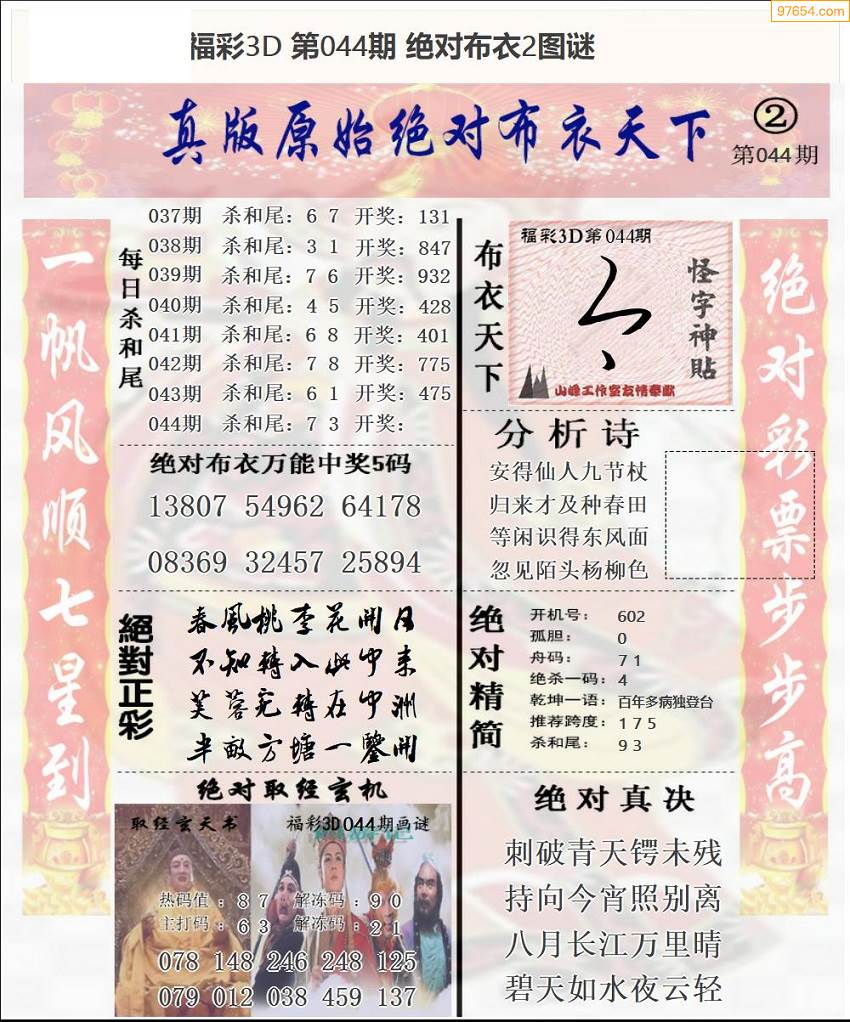 97654.com
福彩3D 第044期 绝对布衣2图谜
真版原始绝对布衣天下
②
第044期
一帆风顺七星到
每日杀和尾
037期 杀和尾：6 7 开奖：131
038期 杀和尾：3 1 开奖：847
039期 杀和尾：7 6 开奖：932
040期 杀和尾：4 5 开奖：428
041期 杀和尾：6 8 开奖：401
042期 杀和尾：7 8 开奖：775
043期 杀和尾：6 1 开奖：475
044期 杀和尾：7 3 开奖：
绝对布衣万能中奖5码
13807 54962 64178
08369 32457 25894
絕對正彩
春風桃李花開日
不知轉入此中来
芙蓉宛轉在中洲
半畝方塘一鑒開
绝对取经玄机
取经玄天书
福彩3D044期画谜
热码值：8 7 解冻码：9 0
主打码：6 3 解冻码：2 1
078 148 246 248 125
079 012 038 459 137
布衣天下
福彩3D第044期
怪字神贴
山峰工作室友情奉献
分析诗
安得仙人九节杖
归来才及种春田
等闲识得东风面
忽见陌头杨柳色
绝对精简
开机号： 602
孤胆： 0
舟码： 7 1
绝杀一码：4
乾坤一语：百年多病独登台
推荐跨度：1 7 5
杀和尾： 9 3
绝对真决
刺破青天锷未残
持向今宵照别离
八月长江万里晴
碧天如水夜云轻
绝对彩票步步高